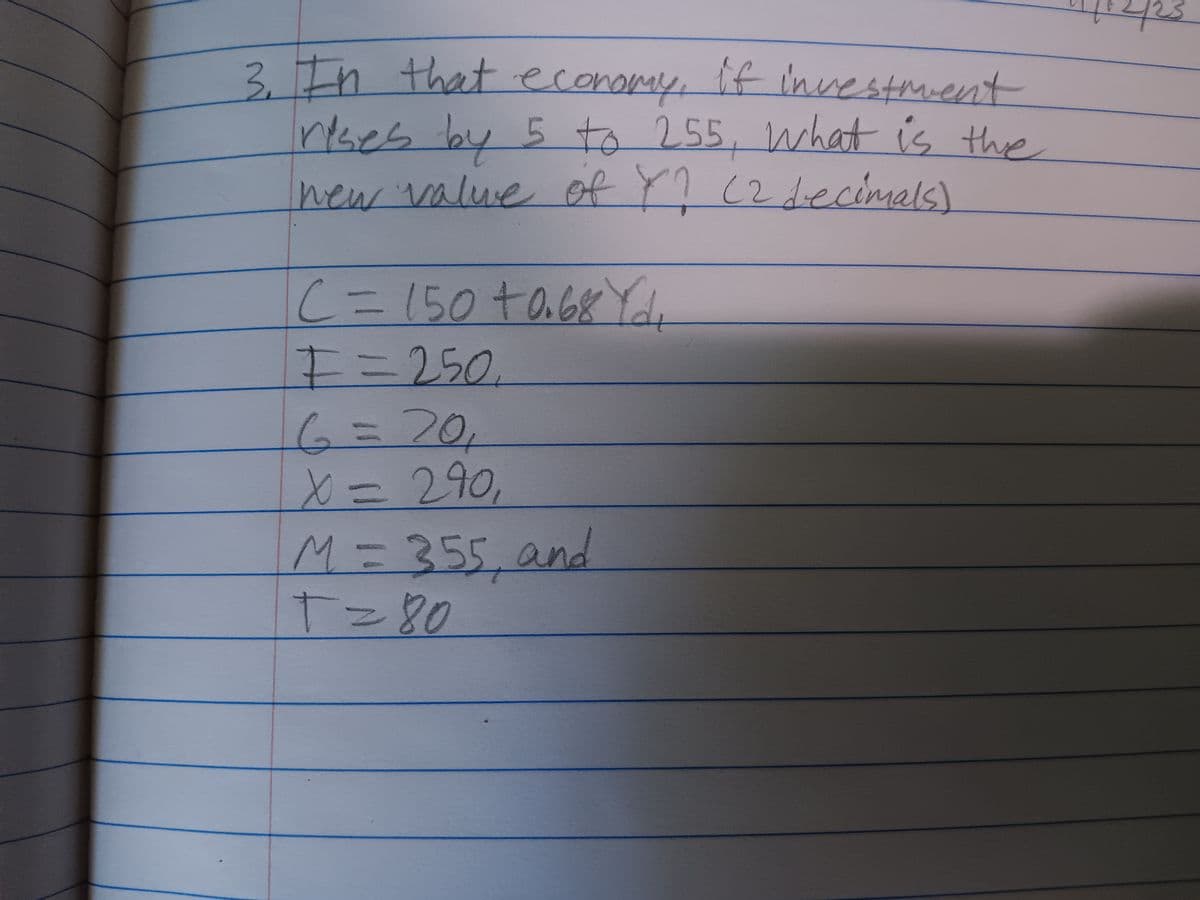 3. In that economy, if investment
rises by 5 to 255, what is the
new value of Y? (2 decimals)
C = 150 + 0.68 Yd,
I = 250,
G = 20,
X = 290,
M = 355, and
T = 80